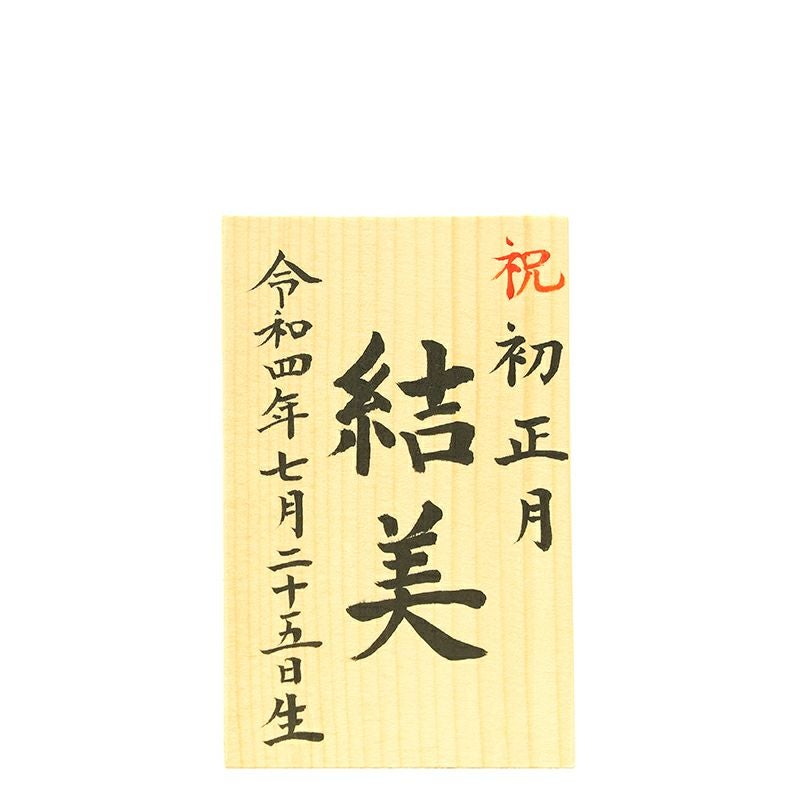 祝初正月
結美
令和四年七月二十五日生